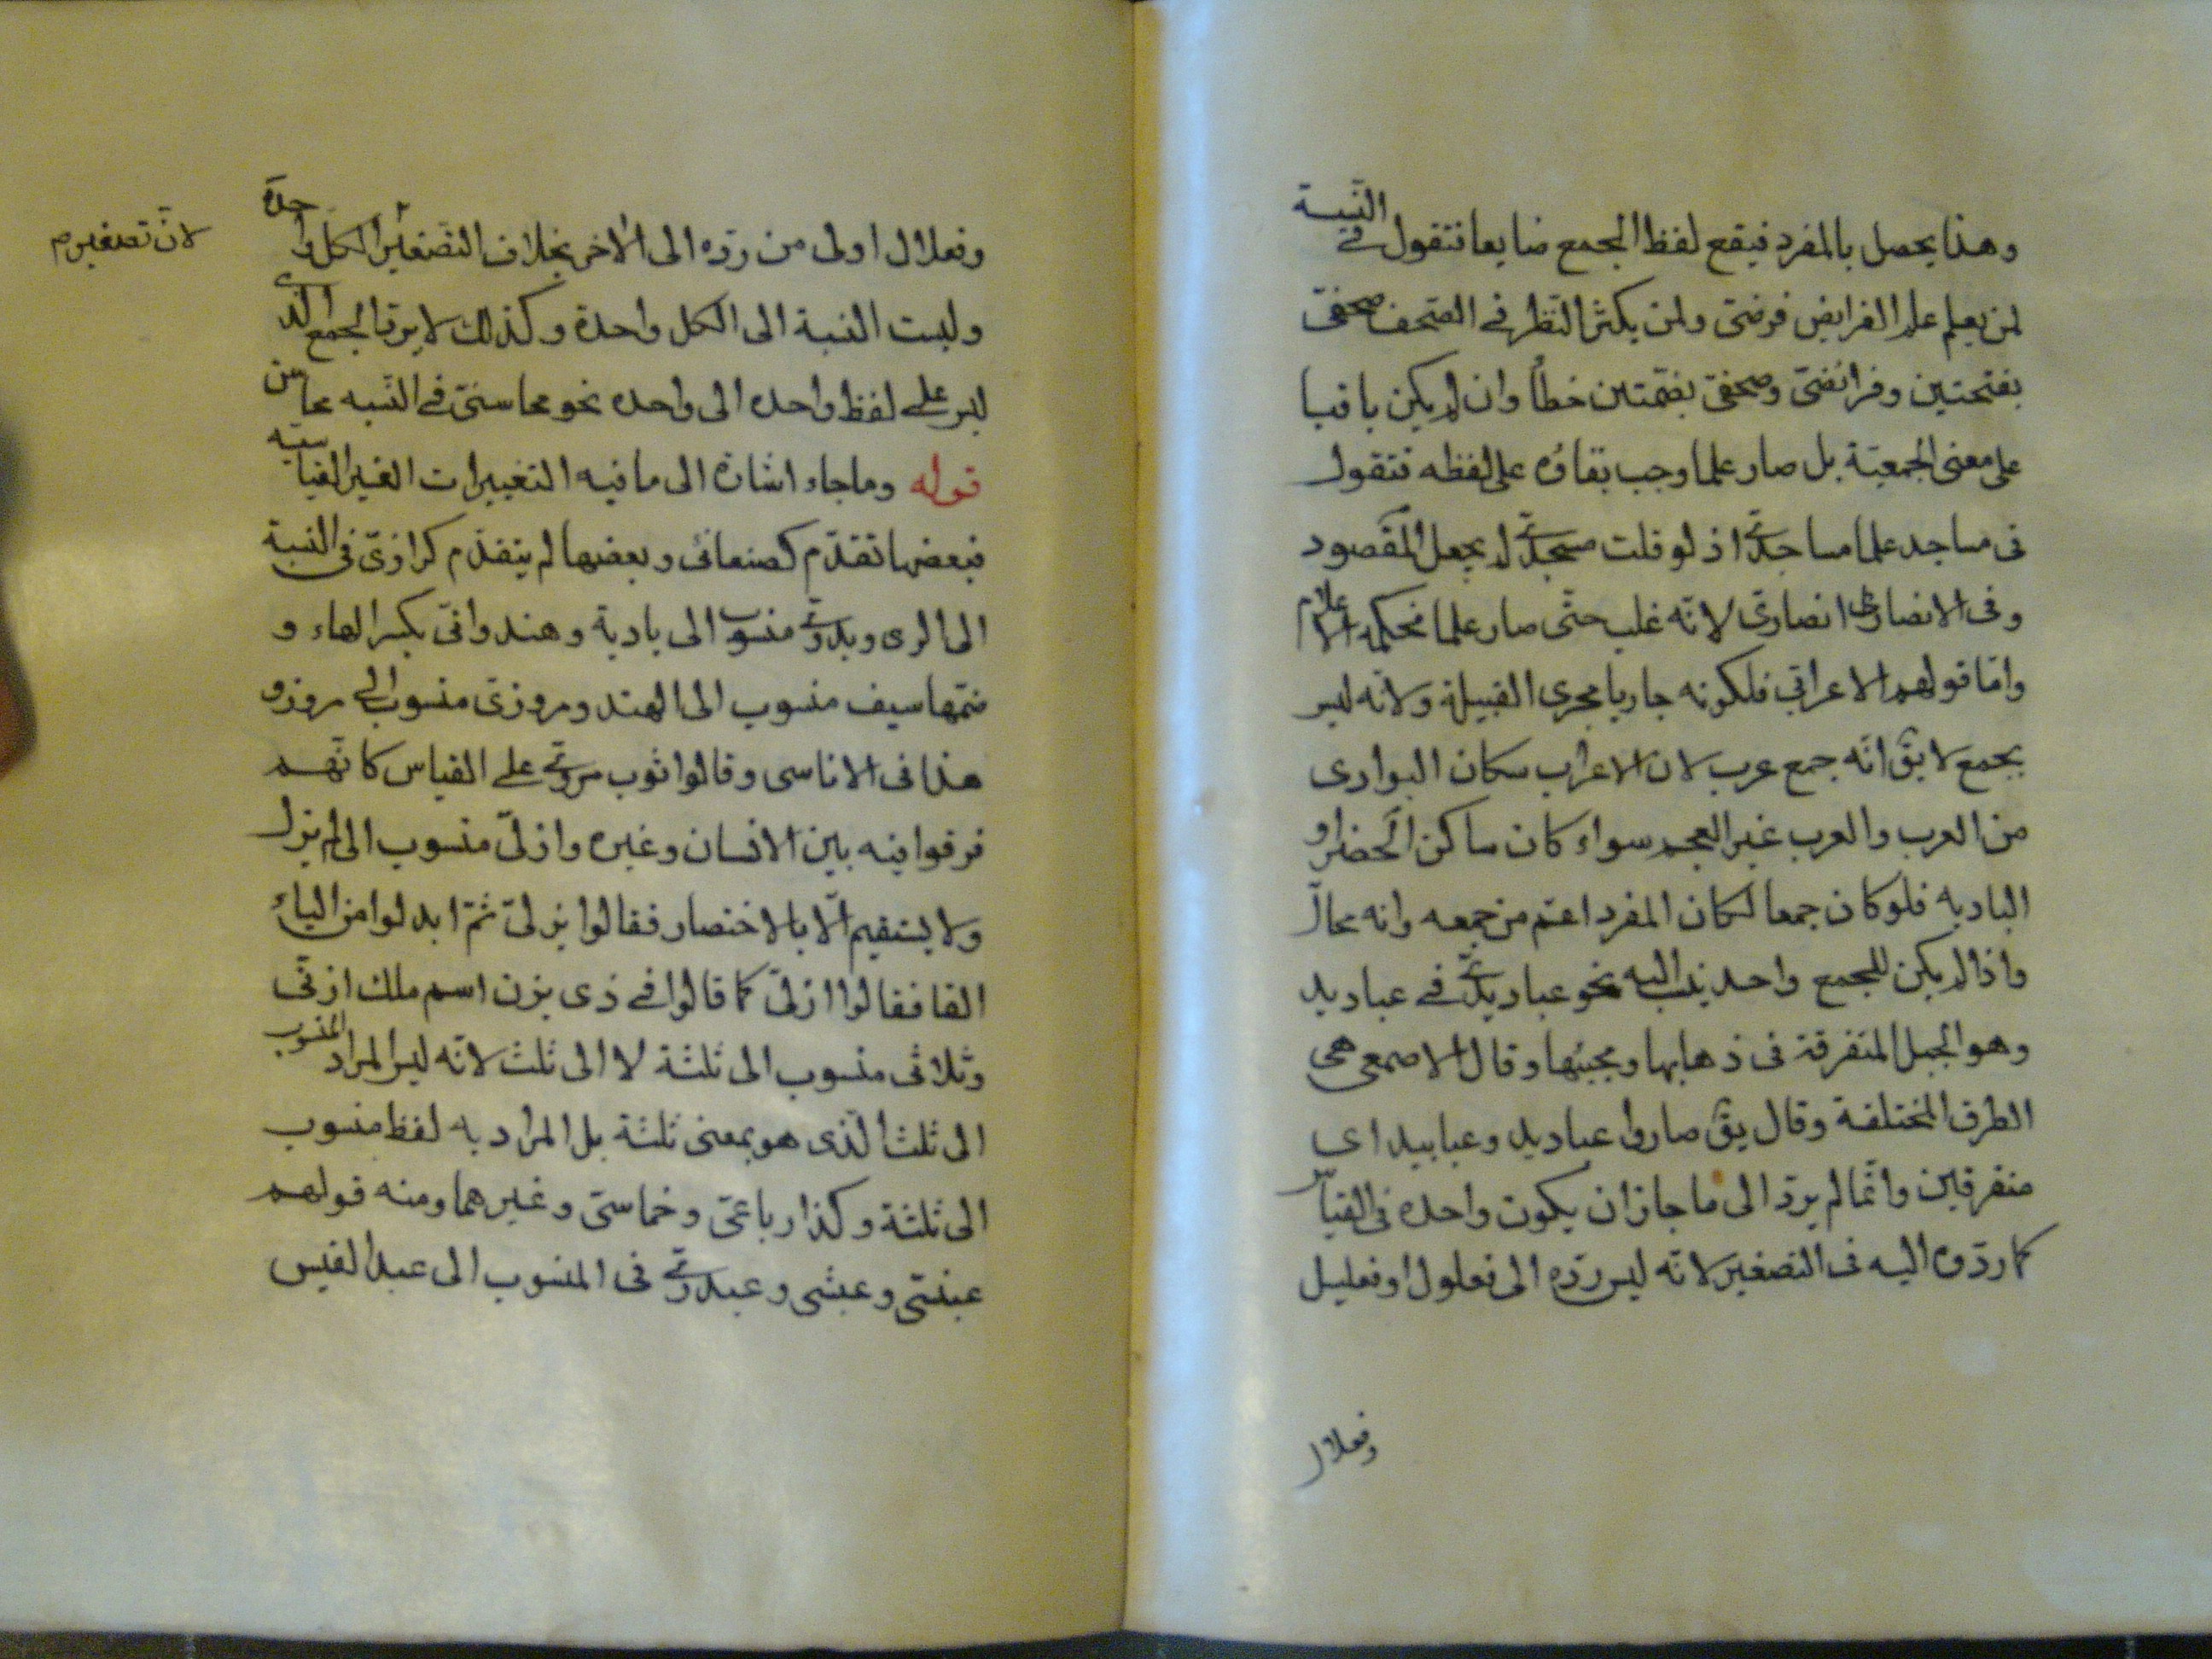 وهذا يحصل بالمفرد فيقع لفظ الجمع ضايعا فتقول في النّسبة
لمن يعلم علم الفرايض فرضىّ ولمن يكثر النّظر في الصّحف صحفىّ
بفتحتين وفرائضىّ وصحفىّ بضمّتين خطأ وان لم يكن باقيا
على معنى الجمعيّة بل صار علما وجب بقاؤه على لفظه فتقول
فى مساجد علما مساجدىّ اذ لو قلت مسجدىّ لم يحصل المقصود
وفى الانصارى انصارىّ لانّه غلب حتّى صار علما فحكمه الاعلام
وامّا قولهم الاعرابى فلكونه جاريا مجرى القبيلة ولانّه ليس
بجمع لا يقّ انّه جمع عرب لان الاعراب سكان البوادى
من العرب والعرب غير العجم سواء كان ساكن الحضر او
البادية فلو كان جمعا لكان المفرد اعمّ من جمعه وانه محال
واذا لم يكن للجمع واحد ينسب اليه نحو عباديدىّ في عباديد
وهو الجبل المتفرقة فى ذهابها ومجيئها وقال الاصمعى هى
الطرق المختلفة وقال يقّ صاروا عباديد وعبابيد اى
متفرقين وانّما لم يردّ الى ما جاز ان يكون واحده فى القياس
كما ردّوه اليه فى التصغير لانّه ليس ردّه الى فعلول او فعليل
وفعلال
وفعلال اولى من ردّه الى الاخر بخلاف التصغير الكل واحدة
لانّ تصغيرم
وليست النسبة الى الكل واحدة وكذلك لا يردّ الجمع الّذى
ليس على لفظ واحده الى واحده نحو محاسنىّ في النّسبه محاسن
قوله وما جاء اشارة الى ما فيه التغييرات الغير القياسيه
فبعضها تقدّم كصنعانى وبعضها لم يتقدّم كرازىّ فى النسبة
الى الرى وبدوىّ منسوب الى بادية وهندوانىّ بكسر الهاء و
ضمّها سيف منسوب الى الهند ومروزىّ منسوب الى مرو و
هذا فى الاناسى وقالوا ثوب مروىّ على القياس كانّهم
فرقوا فيه بين الانسان وغيره وازلىّ منسوب الى لم يزل
ولا يستقيم الّا بالاختصار فقالوا يزلىّ ثمّ ابدلوا من الياء
الفا فقالوا ازلىّ كما قالوا في ذى يزن اسم ملك ازنّى
وثلاثى منسوب الى ثلثة لا الى ثلث لانّه ليس المراد المنسوب
الى ثلث الّذى هو بمعنى ثلثة بل المراد به لفظ منسوب
الى ثلثة وكذا رباعىّ وخماسىّ وغيرهما ومنه قولهم
عبقسّى وعبشى وعبدرىّ فى المنسوب الى عبد القيس